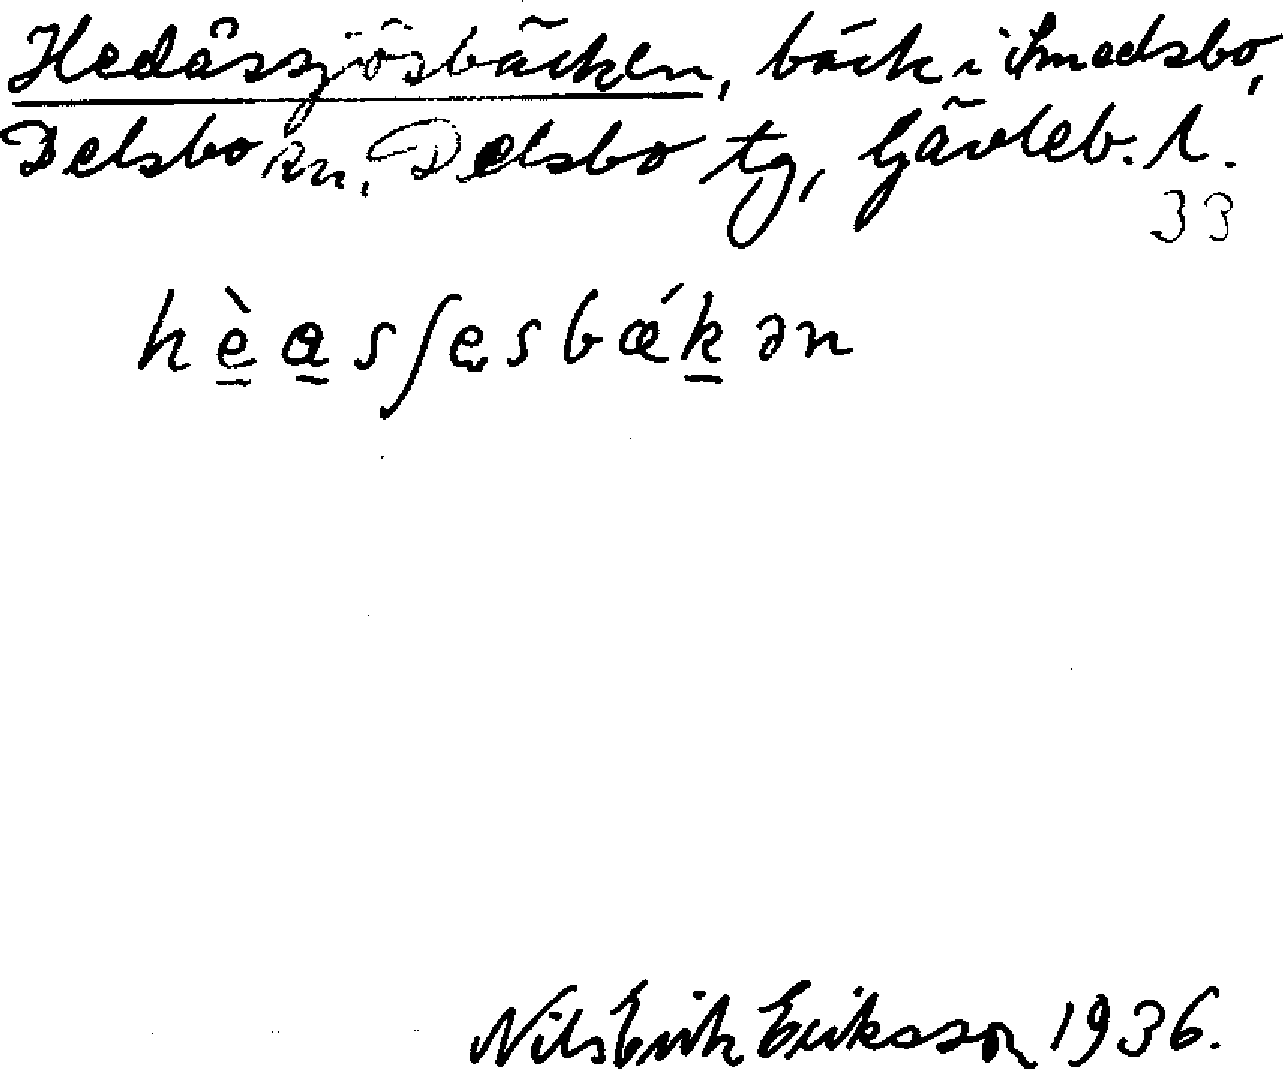 Hedåssjösbäcken, bäck i Smedsbo,
Delsbo sn, Delsbo tg, Gävleb. l.
33
hèassesbǽkən
Nils Erik Eriksson 1936.